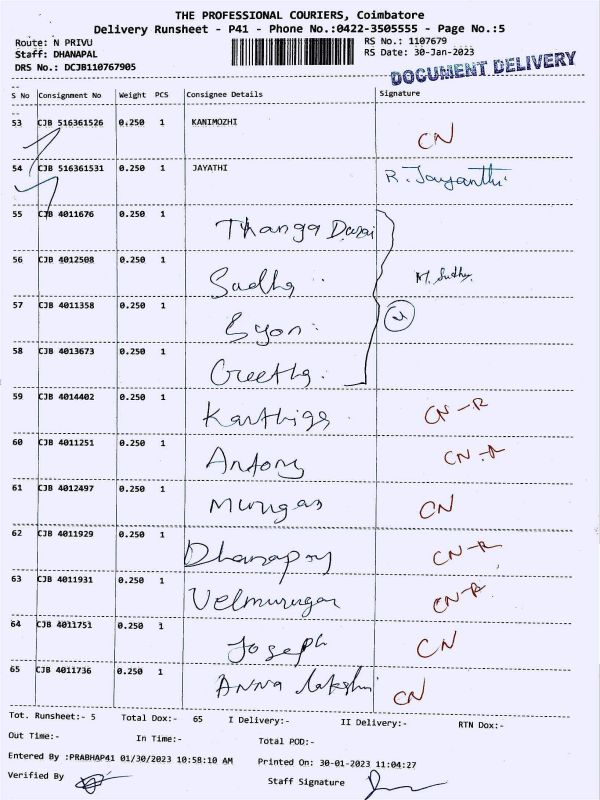 THE PROFESSIONAL COURIERS, Coimbatore
Delivery Runsheet - P41 - Phone No.:0422-3505555 - Page No.:5
Route: N PRIVU
RS No.: 1107679
Staff: DHANAPAL
RS Date: 30-Jan-2023
DRS No.: DCJB110767905
DOCUMENT DELIVERY
S No Consignment No Weight PCS Consignee Details Signature
53 CJB 516361526 0.250 1 KANIMOZHI CN
54 CJB 516361531 0.250 1 JAYATHI R. Jayanthi
55 CJB 4011676 0.250 1 Thanga Durai
56 CJB 4012508 0.250 1 Sudha M. Sudha
57 CJB 4011358 0.250 1 Syon
58 CJB 4013673 0.250 1 Greetha
59 CJB 4014402 0.250 1 Karthiga CN-R
60 CJB 4011251 0.250 1 Antony CN-R
61 CJB 4012497 0.250 1 Murugan CN
62 CJB 4011929 0.250 1 CN-R
63 CJB 4011931 0.250 1 Velmurugan CN-R
64 CJB 4011751 0.250 1 Joseph CN
65 CJB 4011736 0.250 1 Anna lakshmi CN
Tot. Runsheet:- 5 Total Dox:- 65 I Delivery:- II Delivery:- RTN Dox:-
Out Time:- In Time:- Total POD:-
Entered By :PRABHAP41 01/30/2023 10:58:10 AM Printed On: 30-01-2023 11:04:27
Verified By Staff Signature